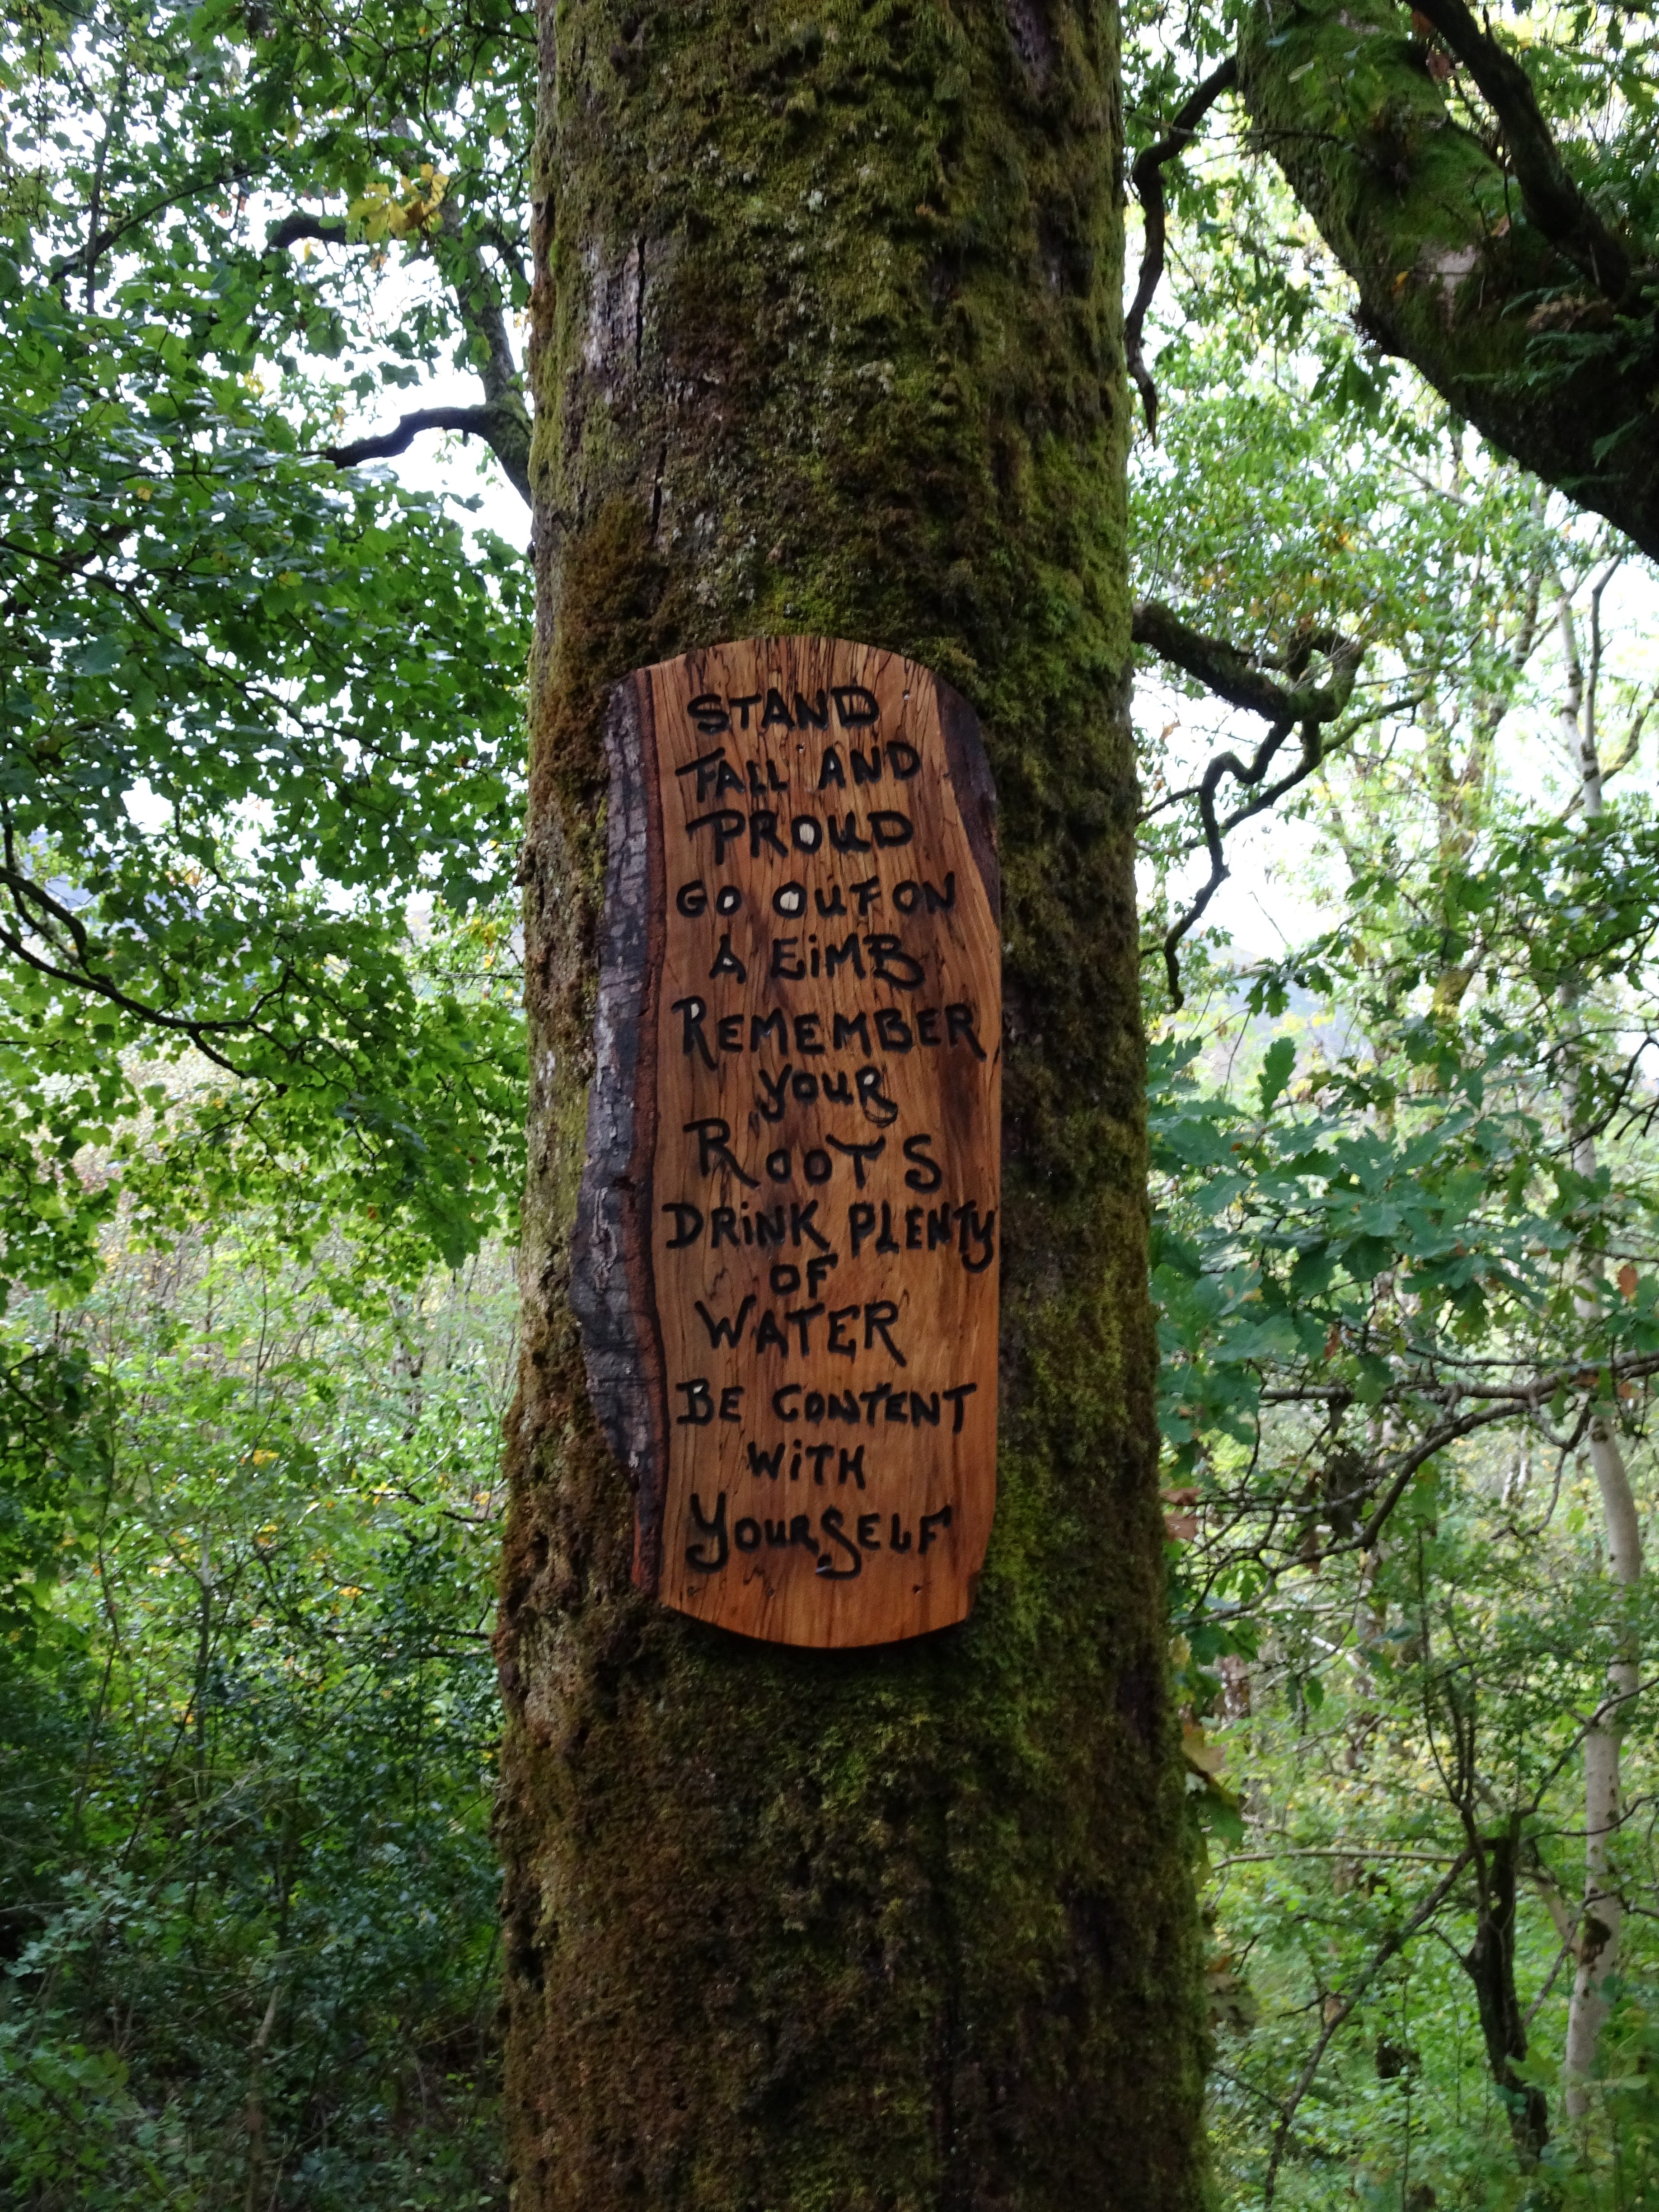 STAND
TALL AND
PROUD
GO OUT ON
A LiMB
REMEMBER
YOUR
ROOTS
DRiNK PLENTY
OF
WATER
BE CONTENT
WiTH
YOURSELF